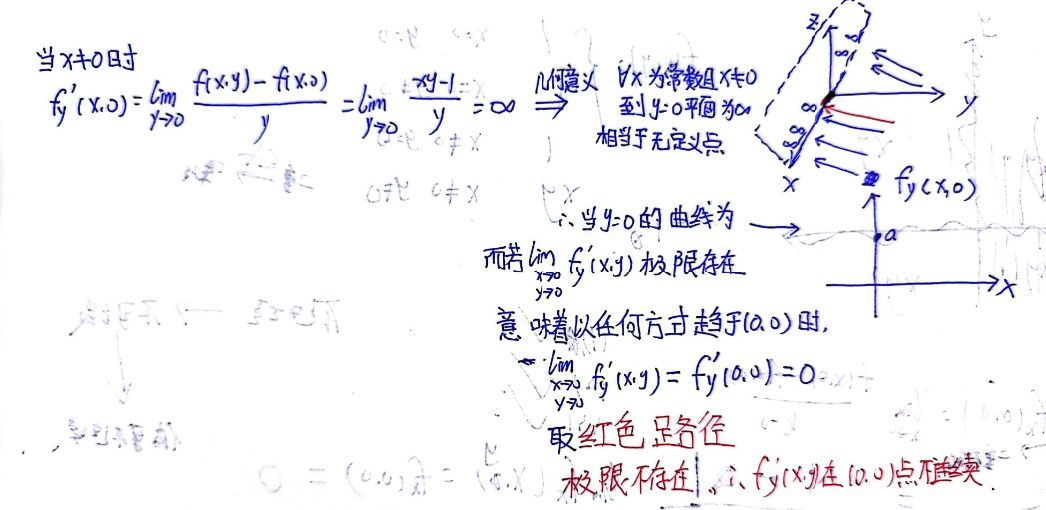 当x≠0时
f_y'(x,0)=lim_{y→0} (f(x,y)-f(x,0))/y = lim_{y→0} (xy-1)/y = ∞ 几何意义⇒ ∀x为常数且x≠0
到y=0平面为∞
相当于无定义点
z
∞ ∞
∞
y
∞ ∞
x
f_y(x,0)
∴当y=0的曲线为 →
a
x
而若lim_{x→0 y→0} f_y'(x,y)极限存在
意味着以任何方式趋于(0,0)时,
lim_{x→0 y→0} f_y'(x,y)=f_y'(0,0)=0
取红色路径
极限不存在、∴f_y'(x,y)在(0,0)点不连续